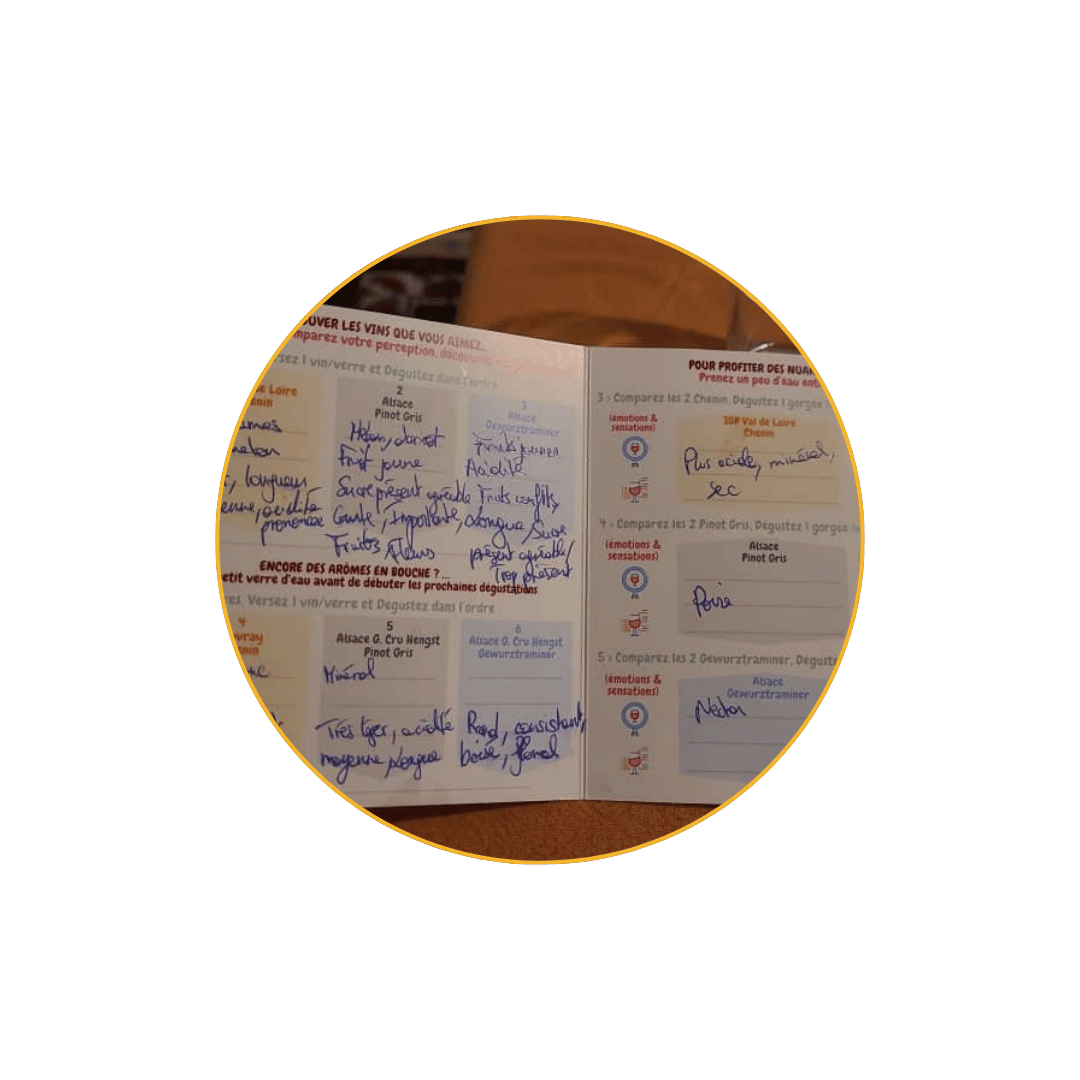 OUVER LES VINS QUE VOUS AIMEZ...
mparez votre perception, découvrez
sez 1 vin/verre et Dégustez dans l'ordre
de Loire
enin
2
Alsace
Pinot Gris
Melon, abricot
Fruit jaune
Sucre présent agréable
Fruités, fleurs
3
Alsace
Gewurztraminer
Fruits jaunes
Acidité
Fruits confits,
Longue, Sucre
présent agréable/
Trop présent
longueur
enne, acidité
prononcée
ENCORE DES ARÔMES EN BOUCHE ? ...
etit verre d'eau avant de débuter les prochaines dégustations
es, Versez 1 vin/verre et Dégustez dans l'ordre
4
uvray
enin
5
Alsace G. Cru Hengst
Pinot Gris
Minéral
Très léger, acidité
moyenne, longue
6
Alsace G. Cru Hengst
Gewurztraminer
Rond, consistant,
boisé, floral
POUR PROFITER DES NUAN
Prenez un peu d'eau ent
3 > Comparez les 2 Chenin, Dégustez 1 gorgée
(émotions &
sensations)
IGP Val de Loire
Chenin
Plus acide, minéral,
sec
4 > Comparez les 2 Pinot Gris, Dégustez 1 gorgée
(émotions &
sensations)
Alsace
Pinot Gris
Poire
5 > Comparez les 2 Gewurztraminer, Déguste
(émotions &
sensations)
Alsace
Gewurztraminer
Nectar